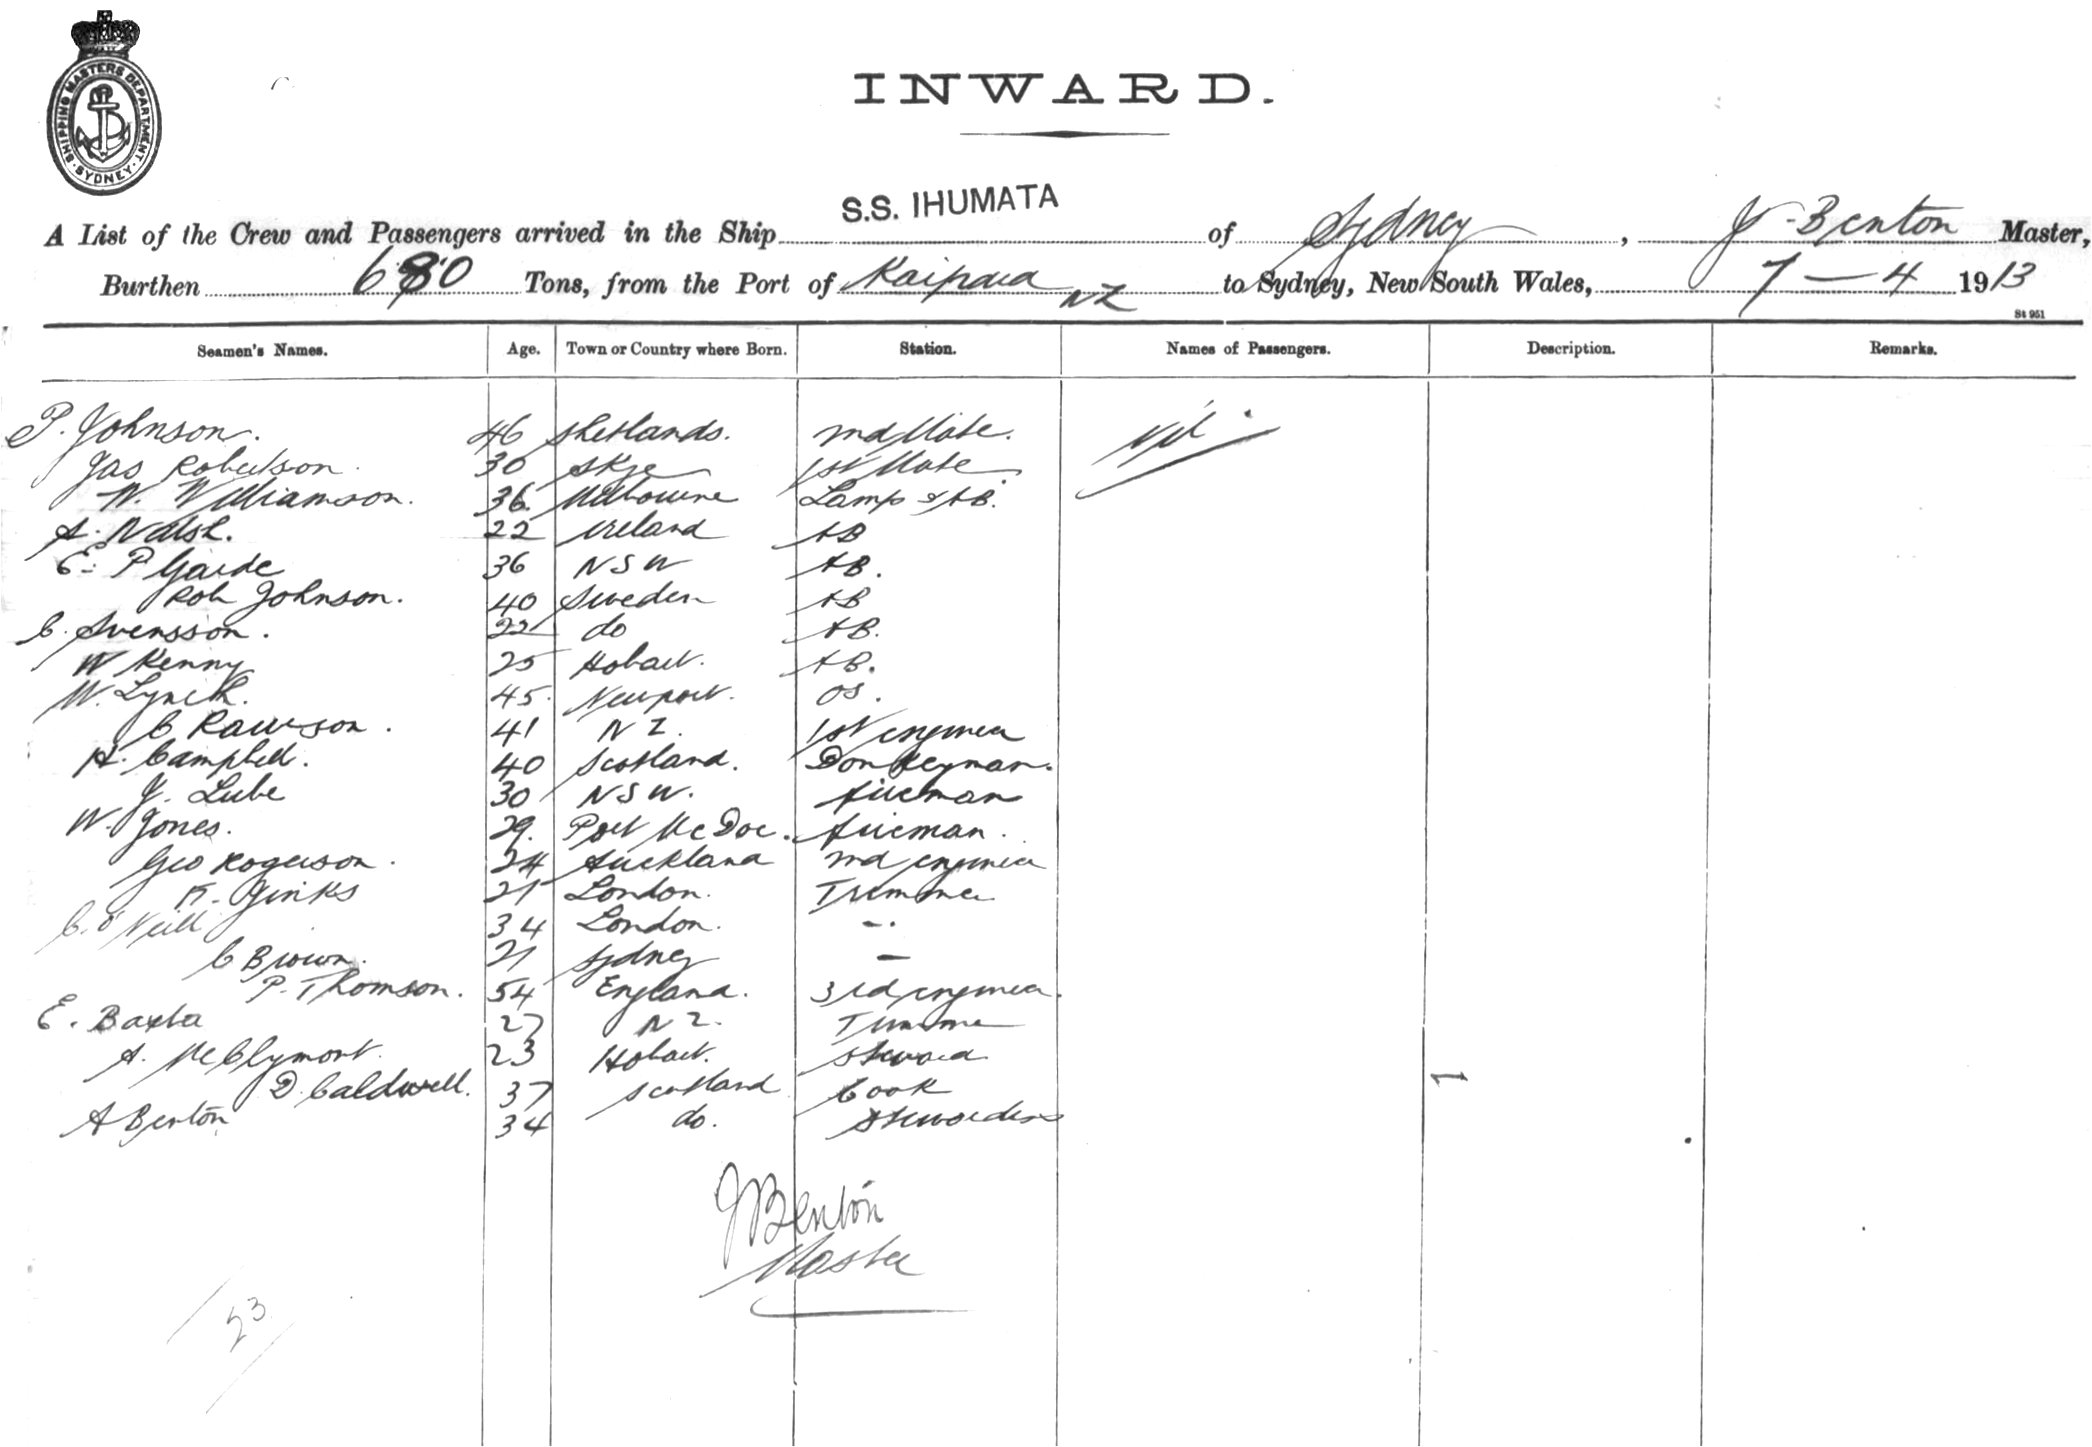 SHIPPING MASTERS DEPARTMENT
SYDNEY
INWARD.
A List of the Crew and Passengers arrived in the Ship S.S. IHUMATA of Sydney, J. Benton Master,
Burthen 680 Tons, from the Port of Kaipara NZ to Sydney, New South Wales, 7 – 4 1913
St 951
Seamen's Names. Age. Town or Country where Born. Station. Names of Passengers. Description. Remarks.
P. Johnson. 46 Shetlands. 2nd Mate. Nil
Jas Robertson. 30 Skye 1st Mate
W. Williamson. 36. Melbourne Lamps & AB.
A. Walsh. 22 Ireland AB
E. P Garde 36 NSW AB.
Rob Johnson. 40 Sweden AB
C. Svensson. 22 do AB.
W Kenny 25 Hobart. AB.
W. Lynch. 45. Newport. OS.
C Rawson. 41 NZ. 1st engineer
H. Campbell. 40 Scotland. Donkeyman.
J. Lube 30 NSW. fireman
W. Jones. 29. Port McDoc. fireman.
Geo Rogerson. 24 Auckland 2nd engineer
K. Jinks 21 London. Trimmer
C. O'Neill 34 London. -.
C Brown. 21 Sydney –
P. Thomson. 54 England. 3rd engineer.
E. Baxter 27 NZ. Trimmer
A. McClymont. 23 Hobart. Steward
D. Caldwell. 37 Scotland Cook
A Benton 34 do. Stewardess
J Benton
Master
23
1